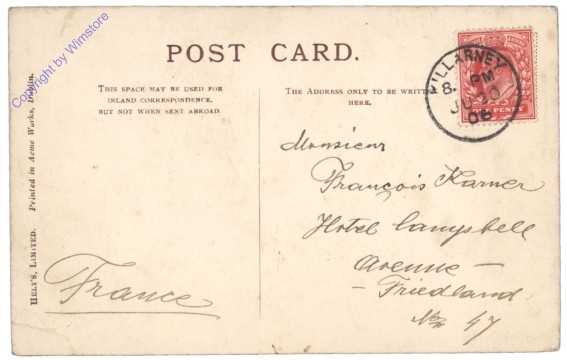 Copyright by Wimstore
POST CARD.
THIS SPACE MAY BE USED FOR
INLAND CORRESPONDENCE,
BUT NOT WHEN SENT ABROAD.
THE ADDRESS ONLY TO BE WRITTEN
HERE.
KILLARNEY
8. PM
JU 30
06
PENNY
Monsieur
François Karner
Hotel Campbell
Avenue –
– Friedland
No 47
France
HELY'S, LIMITED. Printed in Acme Works, Dublin.